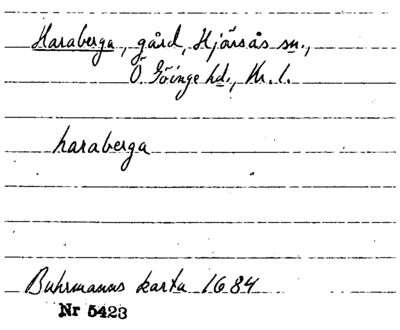 Haraberga, gård, Hjärsås sn.,
Ö. Göinge hd., Kr. l.
haraberga
Buhrmanns karta 1684
Nr 5423